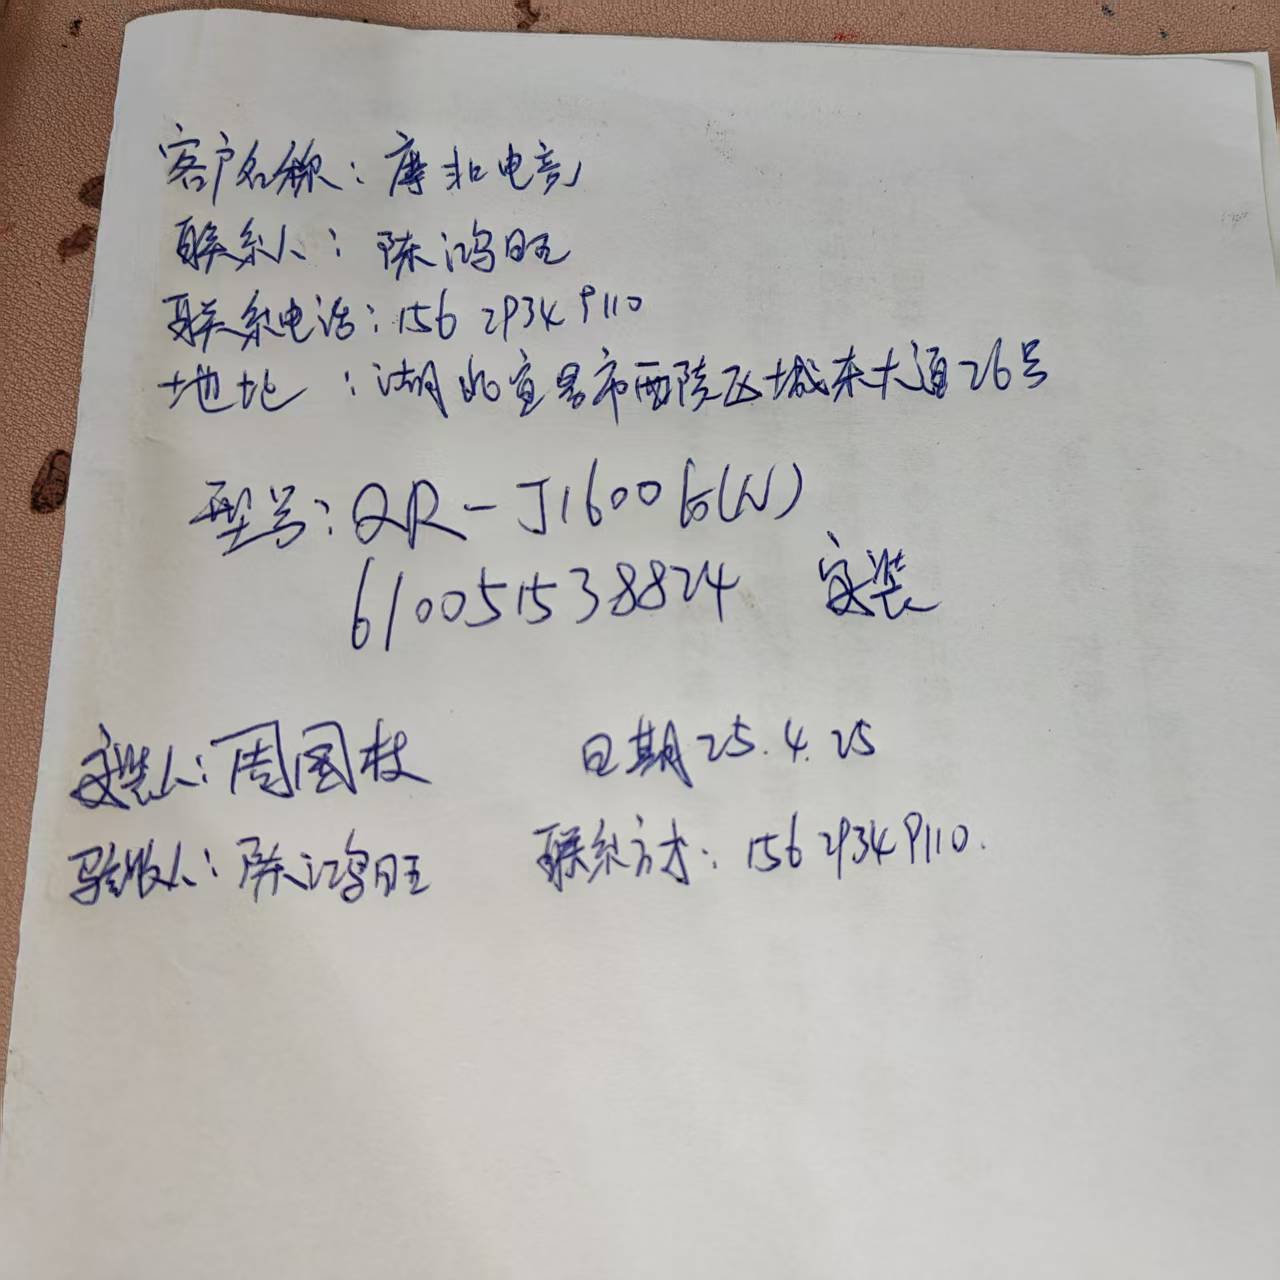 客户名称：摩和电竞
联系人：陈鸿旺
联系电话：15629349110
地址：湖北宜昌市西陵区城东大道26号
型号：QR-J1600G(W)
610051538824 安装
安装人：周国枝 日期25.4.25
验收人：陈鸿旺 联系方式：15629349110.